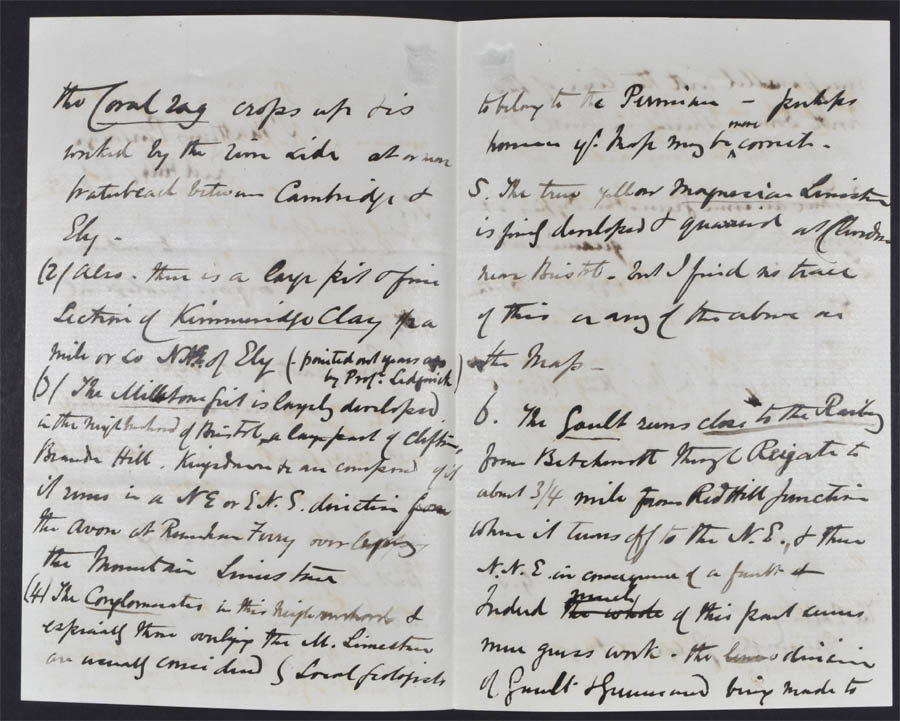 the Coral rag crops up & is
worked by the river side at or near
Waterbeach between Cambridge &
Ely -
(2) Also - there is a large pit & fine
Section of Kimmeridge Clay a
mile or so N. of Ely (pointed out years ago
by Profr. Sedgwick)
(3) The Millstone grit is largely developed
in the neighbourhood of Bristol, a large part of Clifton,
Brandon Hill, Kingsdown &c are composed of it
it runs in a N E or E N. E. direction from
the Avon at Rownham Ferry over
the Mountain Limestone
(4) The Conglomerates in this neighbourhood &
especially those overlying the M. Limestone
are usually considered by Local geologists
to belong to the Permian - perhaps
however yr. Map may be more correct -
5. The true yellow Magnesian Limestone
is finely developed & quarried at Clevedon
near Bristol - but I find no trace
of this or any of the above in
the Map -
6. The Gault runs close to the Railway
from Betchworth through Reigate to
about 3/4 mile from Red Hill Junction
where it turns off to the N. E., & then
N. N. E. in consequence of a fault &
Indeed the whole much of this part seems
mere guess work - the division
of Gault & Greensand being made to